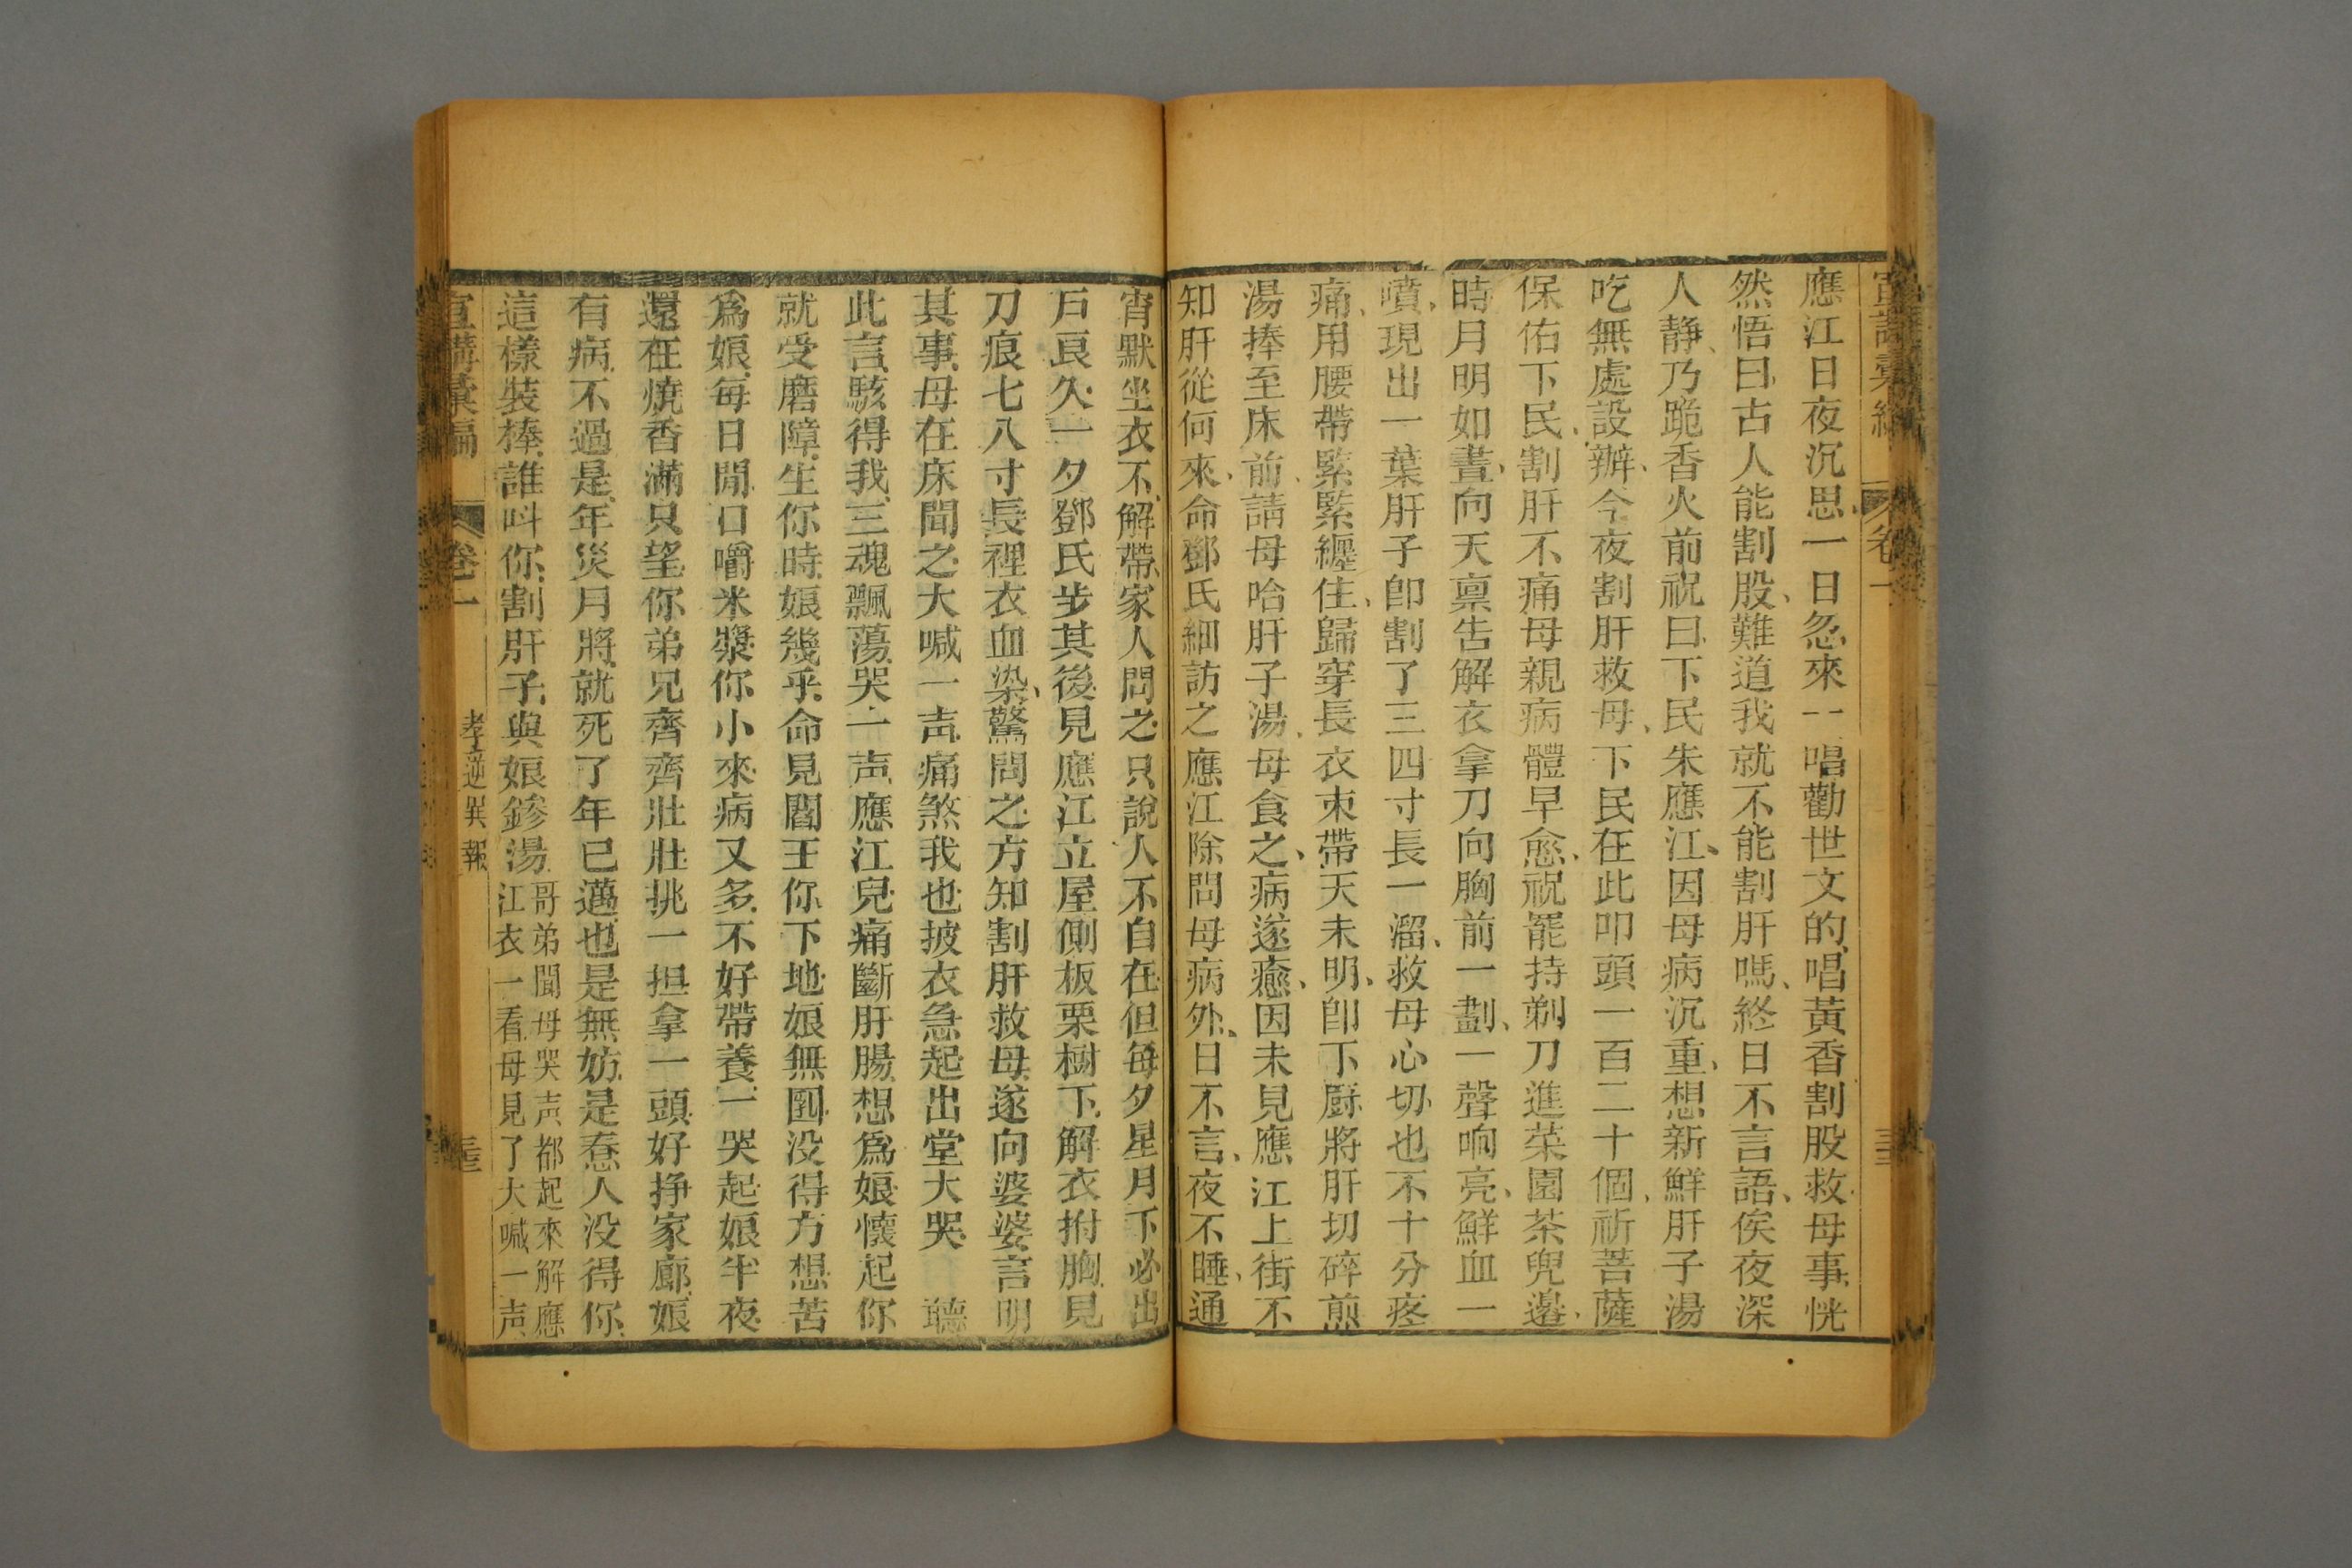 宣講彙編 卷一
應江日夜沉思一日忽來一唱勸世文的唱黃香割股救母事恍
然悟曰古人能割股難道我就不能割肝嗎終日不言語俟夜深
人靜乃跪香火前祝曰下民朱應江因母病沉重想新鮮肝子湯
吃無處設辦今夜割肝救母下民在此叩頭一百二十個祈菩薩
保佑下民割肝不痛母親病體早愈祝罷持剃刀進菜園茶兜邊
時月明如晝向天禀告解衣拿刀向胸前一劃一聲响亮鮮血一
噴現出一葉肝子卽割了三四寸長一溜救母心切也不十分疼
痛用腰帶緊緊纏住歸穿長衣束帶天未明卽下厨將肝切碎煎
湯捧至床前請母哈肝子湯母食之病遂癒因未見應江上街不
知肝從何來命鄧氏細訪之應江除問母病外日不言夜不睡通
宵默坐衣不解帶家人問之只說人不自在但每夕星月下必出
戶良久一夕鄧氏步其後見應江立屋側板栗樹下解衣拊胸見
刀痕七八寸長裡衣血染驚問之方知割肝救母遂向婆婆言明
其事母在床聞之大喊一声痛煞我也披衣急起出堂大哭 聽
此言駭得我三魂飄蕩哭一声應江兒痛斷肝腸想為娘懷起你
就受磨障生你時娘幾乎命見閻王你下地娘無囬没得方想苦
為娘每日閒口嚼米漿你小來病又多不好帶養一哭起娘半夜
還在燒香滿只望你弟兄齊齊壯壯挑一担拿一頭好挣家廊娘
有病不過是年災月將就死了年已邁也是無妨是惷人没得你
這樣裝棒誰呌你割肝子與娘鉁湯哥弟聞母哭声都起來解應
江衣一看母見了大喊一声
宣講彙編 卷一 孝逆異報